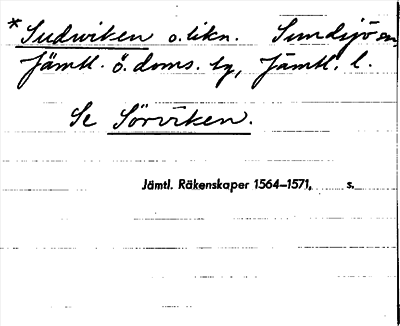 *Sudwiken o.likn. Sundsjö sn,
Jämtl. ö. doms. tg, Jämtl. l.
Se Sörviken.
Jämtl. Räkenskaper 1564–1571, s.